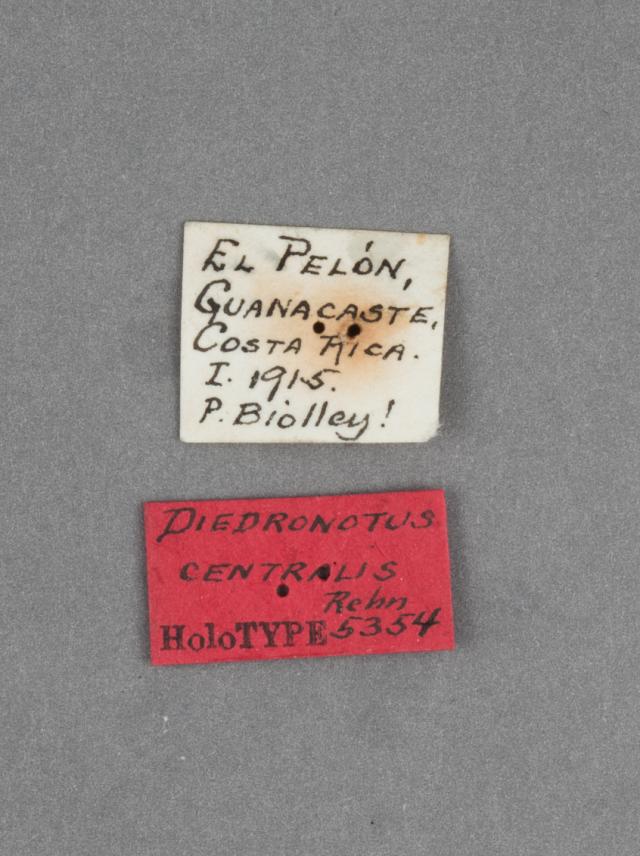 El Pelón,
Guanacaste,
Costa Rica.
I. 1915.
P. Biolley!
Diedronotus
centralis
Rehn
HoloTYPE 5354